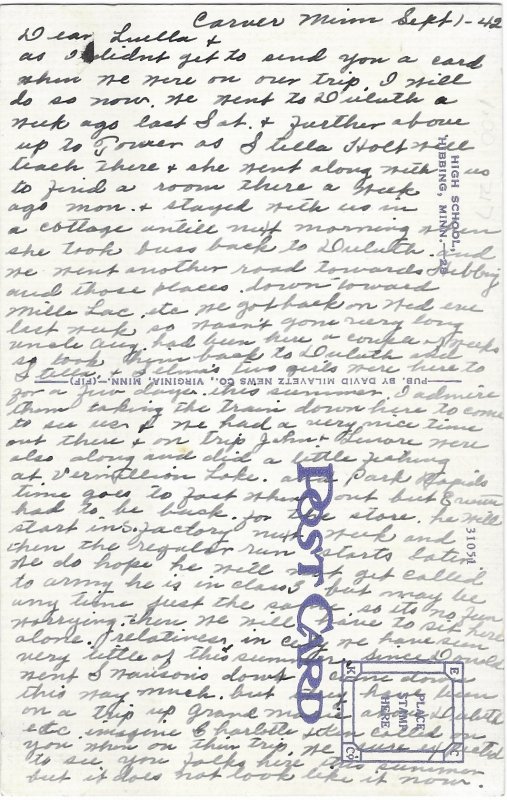 Carver Minn Sept 1-42
Dear Luella +
as I didnt get to send you a card
when we were on our trip, I will
do so now. We went to Duluth a
week ago last Sat. + further above
up to Tower as Stella Holt will
teach there + she went along with us
to find a room there a week
ago mon. + stayed with us in
a cottage untill next morning when
she took bus back to Duluth and
we went another road towards Hibbing
and those places. down toward
Mille Lac. etc we got back on Wed eve
last week so wasn't gone very long
uncle Aug. had been here a couple weeks
so took them back to Duluth and
Stella + Selma's two girls were here to
for a few days this summer. I admire
them taking the train down here to come
to see us. + we had a very nice time
out there + on trip John + Lenore were
also along and did a little fishing
at Vermillion Lake. and Park Rapids
time goes to fast when out but
had to be back for the store. he will
start in factory next week and
then the regular run starts later
We do hope he will not get called
to army he is in class 3 but may be
any time just the same so its no fun
worrying. then we will have to sit here
alone. relatives in we have seen
very little of this summer since
went Swansons dont come down
this way much. but they have been
on a trip up Grand Marais and Duluth
etc. imagine Charlotte + called on
you when on their trip. We sure expected
to see you folks here this summer
but it does not look like it now.
HIGH SCHOOL,
HIBBING, MINN.—28
PUB. BY DAVID MILAVETZ NEWS CO., VIRGINIA, MINN.—(FIF)
POST CARD
31051
PLACE
STAMP
HERE
E
K
K
Co